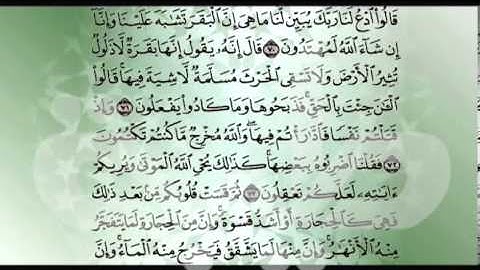 قَالُوا۟ ٱدْعُ لَنَا رَبَّكَ يُبَيِّن لَّنَا مَا هِىَ إِنَّ ٱلْبَقَرَ تَشَٰبَهَ عَلَيْنَا وَإِنَّآ
إِن شَآءَ ٱللَّهُ لَمُهْتَدُونَ ﴿٧٠﴾ قَالَ إِنَّهُۥ يَقُولُ إِنَّهَا بَقَرَةٌ لَّا ذَلُولٌ
تُثِيرُ ٱلْأَرْضَ وَلَا تَسْقِى ٱلْحَرْثَ مُسَلَّمَةٌ لَّا شِيَةَ فِيهَا قَالُوا۟
ٱلْـَٰٔنَ جِئْتَ بِٱلْحَقِّ فَذَبَحُوهَا وَمَا كَادُوا۟ يَفْعَلُونَ ﴿٧١﴾ وَإِذْ
قَتَلْتُمْ نَفْسًا فَٱدَّٰرَْٰٔتُمْ فِيهَا وَٱللَّهُ مُخْرِجٌ مَّا كُنتُمْ تَكْتُمُونَ
﴿٧٢﴾ فَقُلْنَا ٱضْرِبُوهُ بِبَعْضِهَا كَذَٰلِكَ يُحْىِ ٱللَّهُ ٱلْمَوْتَىٰ وَيُرِيكُمْ
ءَايَٰتِهِۦ لَعَلَّكُمْ تَعْقِلُونَ ﴿٧٣﴾ ثُمَّ قَسَتْ قُلُوبُكُم مِّنۢ بَعْدِ ذَٰلِكَ
فَهِىَ كَٱلْحِجَارَةِ أَوْ أَشَدُّ قَسْوَةً وَإِنَّ مِنَ ٱلْحِجَارَةِ لَمَا يَتَفَجَّرُ
مِنْهُ ٱلْأَنْهَٰرُ وَإِنَّ مِنْهَا لَمَا يَشَّقَّقُ فَيَخْرُجُ مِنْهُ ٱلْمَآءُ وَإِنَّ